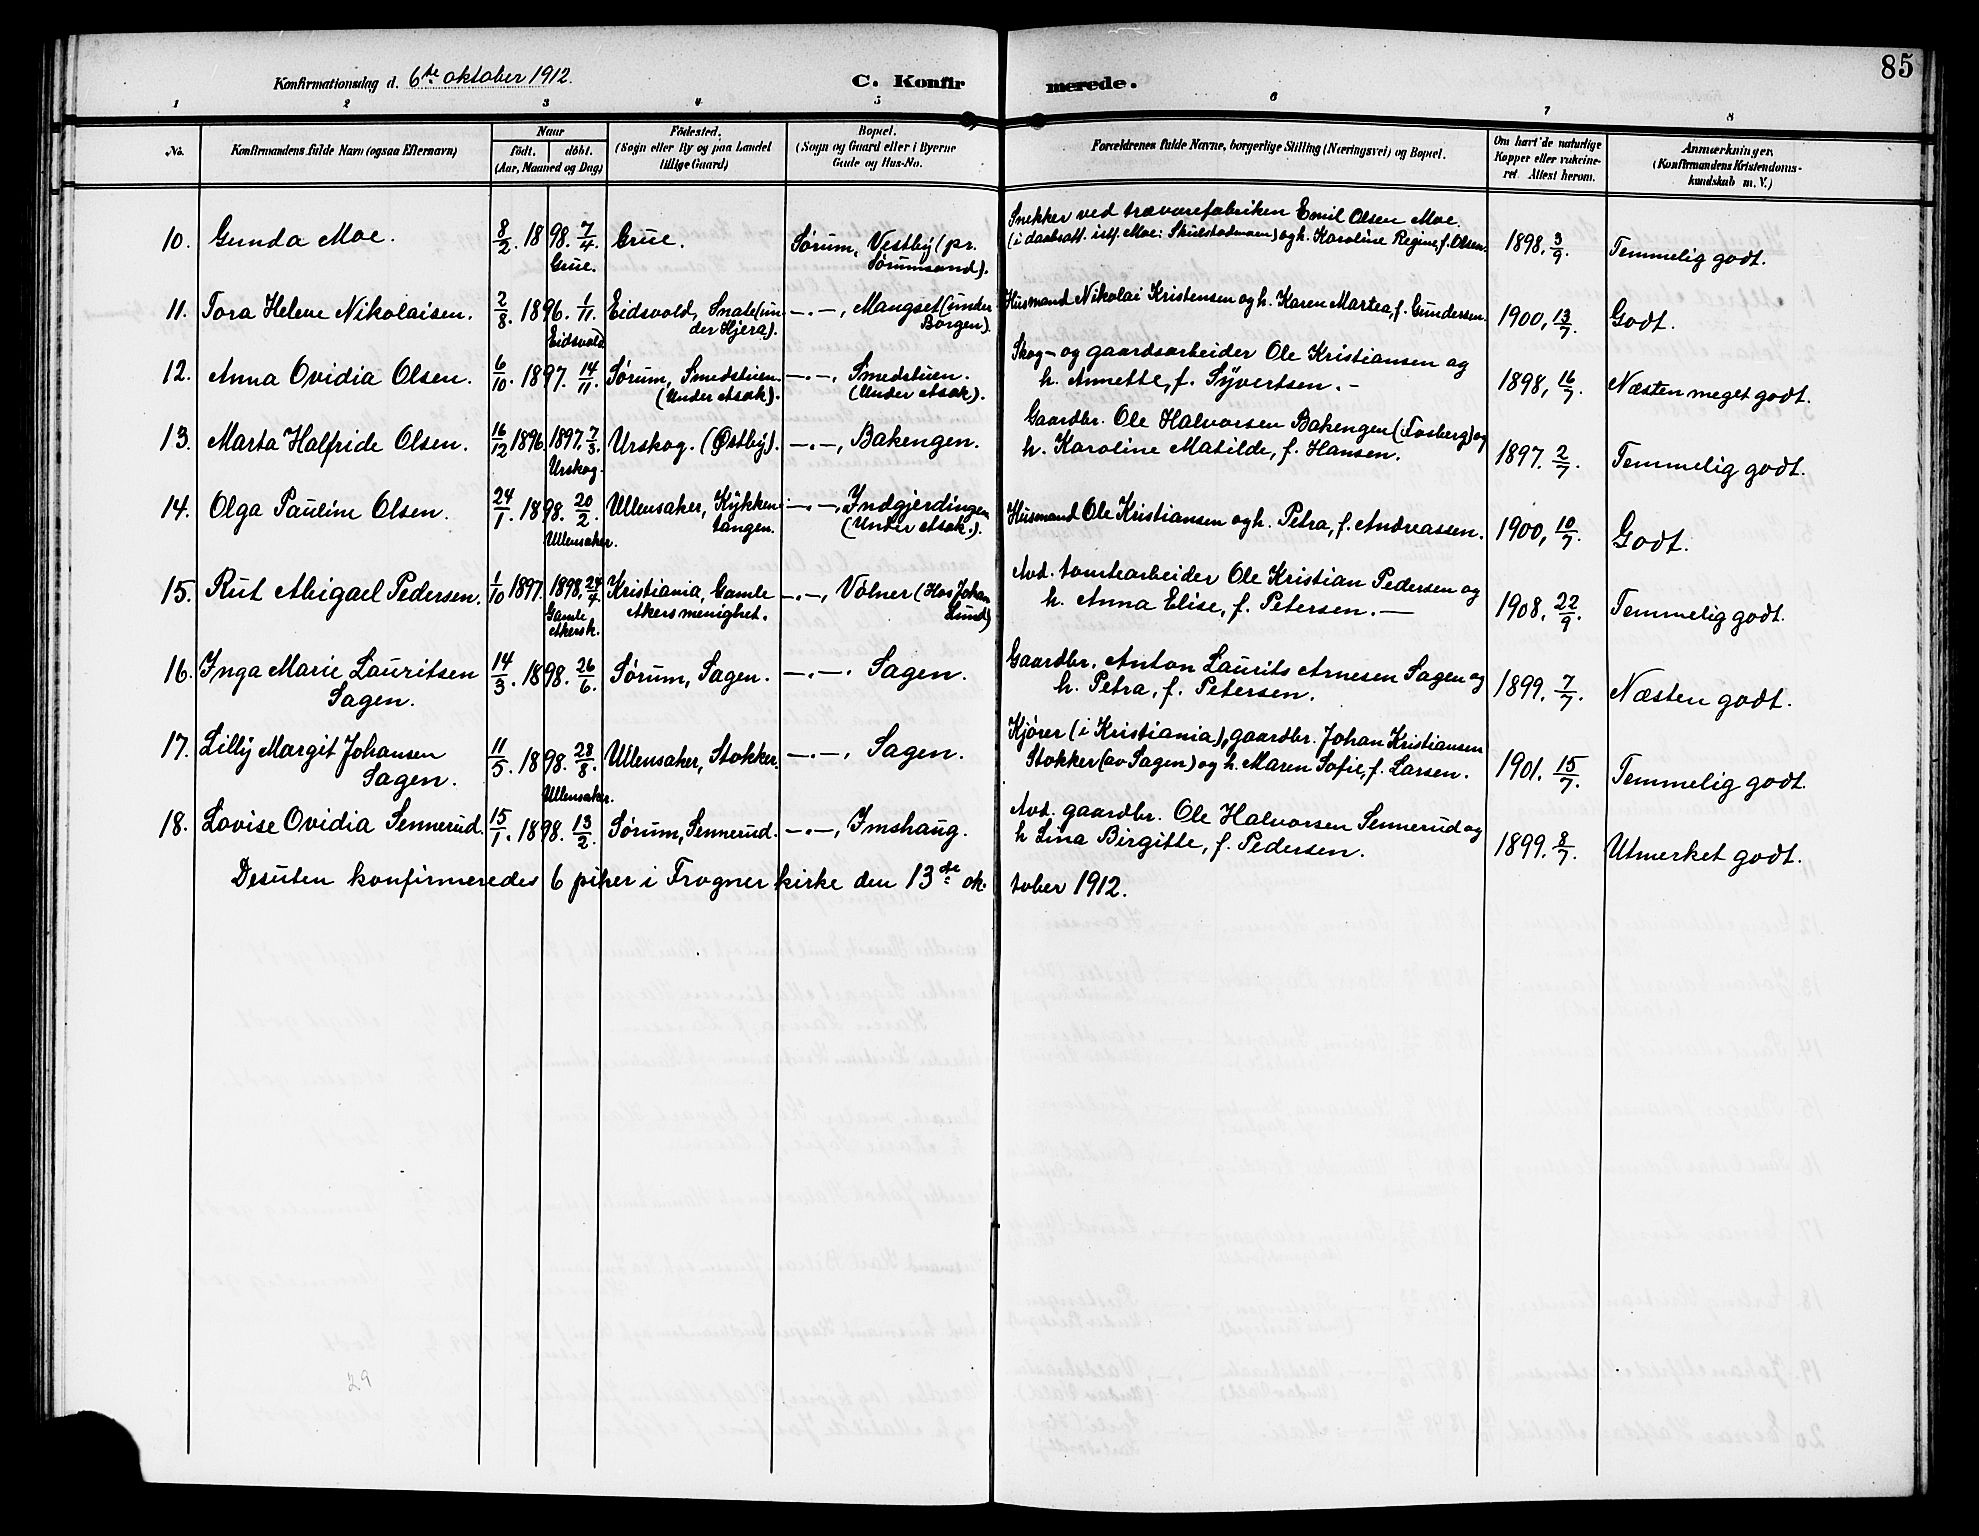 85
Konfirmationsdag d. 6te oktober 1912.
C. Konfirmerede.
1 2 3 4 5 6 7 8
No.
Konfirmandens fulde Navn (ogsaa Efternavn)
Naar
født. døbt.
(Aar, Maaned og Dag)
Fødested.
(Sogn eller By og paa Landet
tillige Gaard)
Bopæl.
(Sogn og Gaard eller i Byerne
Gade og Hus-No.
Forældrenes fulde Navne, borgerlige Stilling (Næringsvei) og Bopæl.
Om havt de naturlige
Kopper eller vakcine-
ret. Attest herom.
Anmærkninger.
(Konfirmandens Kristendoms-
kundskab m. V.)
10. Gunda Moe. 8/2. 1898. 7/4. Grue. Grue. Sørum, Vestby (pr. Sørumsand).
Snekker ved trævarefabriken Emil Olsen Moe
(i daabsatt. istf. Moe: Skulstadmoen) og h. Karoline Regine, f. Olsen. 1898. 3/9. Temmelig godt.
11. Tora Helene Nikolaisen. 2/8. 1896. 1/11. Eidsvold Eidsvold, Snate (under Hjera). —.—, Mangset (under Borgen).
Husmand Nikolai Kristensen og h. Karen Martea, f. Gundersen. 1900, 13/7. Godt.
12. Anna Ovidia Olsen. 6/10. 1897. 14/11. Sørum, Smedstuen. (Under Asak). —.—, Smedstuen. (Under Asak).
Skog- og gaardsarbeider Ole Kristiansen og
h. Annette, f. Syvertsen. – 1898, 16/7. Næsten meget godt.
13. Marta Halfride Olsen. 16/12 1896. 1897. 7/3. Urskog. Urskog. (Østby). —.—, Bakengen.
Gaardbr. Ole Halvorsen Bakengen (Fosberg) og
h. Karoline Matilde, f. Hansen. 1897. 2/7. Temmelig godt.
14. Olga Pauline Olsen. 24/1. 1898. 20/2. Ullensaker. Ullensaker, Kykkentangen. —.—, Indgjerdingen (Under Asak.).
Husmand Ole Kristiansen og h. Petra, f. Andreassen. 1900, 10/7. Godt.
15. Rut Abigael Pedersen. 1/10 1897. 1898. 24/4. Gamle Akersk. Kristiania, Gamle Akers menighet. —.—, Vølner (Hos Johan Lund)
Avd. tomtearbeider Ole Kristian Pedersen og
h. Anna Elise, f. Petersen. — 1908. 22/9. Temmelig godt.
16. Inga Marie Lauritsen Sagen. 14/3. 1898. 26/6. Sørum, Sagen. —.—. Sagen.
Gaardbr. Anton Laurits Arnesen Sagen og
h. Petra, f. Petersen. 1899. 7/7. Næsten godt.
17. Lilly Margit Johansen Sagen. 11/5. 1898. 28/8. Ullensaker. Ullensaker, Stokker. —.—, Sagen.
Kjører (i Kristiania), gaardbr. Johan Kristiansen
Stokker (av Sagen) og h. Maren Sofie, f. Larsen. 1901. 15/7. Temmelig godt.
18. Lovise Ovidia Sennerud. 15/1. 1898. 13/2. Sørum, Sennerud. —.—, Imshaug.
Avd. gaardbr. Ole Halvorsen Sennerud og
h Lina Birgitte, f. Pedersen. 1899. 8/7. Utmerket godt.
Desuten konfirmeredes 6 piker i Frogner kirke den 13de oktober 1912.
29